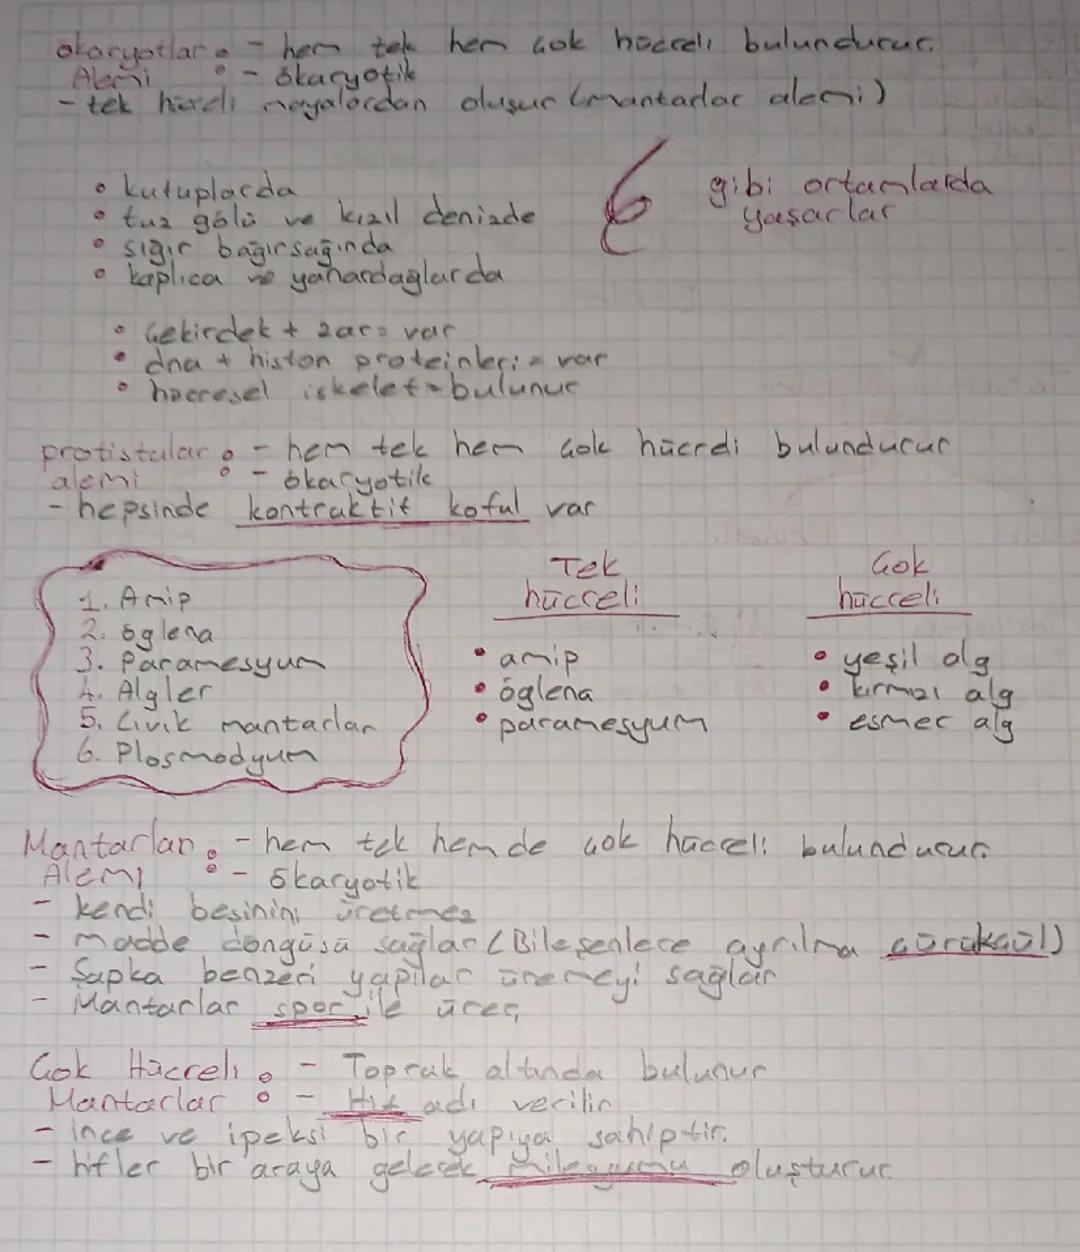 ökaryotlar : - hem tek hem çok hücreli bulundurur.
Alemi - ökaryotik
- tek hücreli mayalardan oluşur (mantarlar alemi)
• kutuplarda
• tuz gölü ve kızıl denizde
• sığır bağırsağında
• kaplıca ve yanardağlarda
gibi ortamlarda
yaşarlar
• Çekirdek + zarı = var
• dna + histon proteinleri = var
• hücresel iskelet = bulunur
protistalar : - hem tek hem çok hücreli bulundurur
alemi - ökaryotik
- hepsinde kontraktit koful var
1. Amip
2. öglena
3. Paramesyum
4. Algler
5. Cıvık mantarlar
6. Plasmodyum
Tek
hücreli
• amip
• öglena
• paramesyum
Çok
hücreli
• yeşil alg
• kırmızı alg
• esmer alg
Mantarlar : - hem tek hem de çok hücreli bulundurur.
Alemi - ökaryotik
- kendi besinini üretmez
- madde döngüsü sağlar (Bileşenlere ayrılma çürükçül)
- Şapka benzeri yapılar üremeyi sağlar
- Mantarlar spor ile ürer
Çok Hücreli : - Toprak altında bulunur
Mantarlar - Hif adı verilir
- ince ve ipeksi bir yapıya sahiptir.
- hifler bir araya gelerek oluşturur.